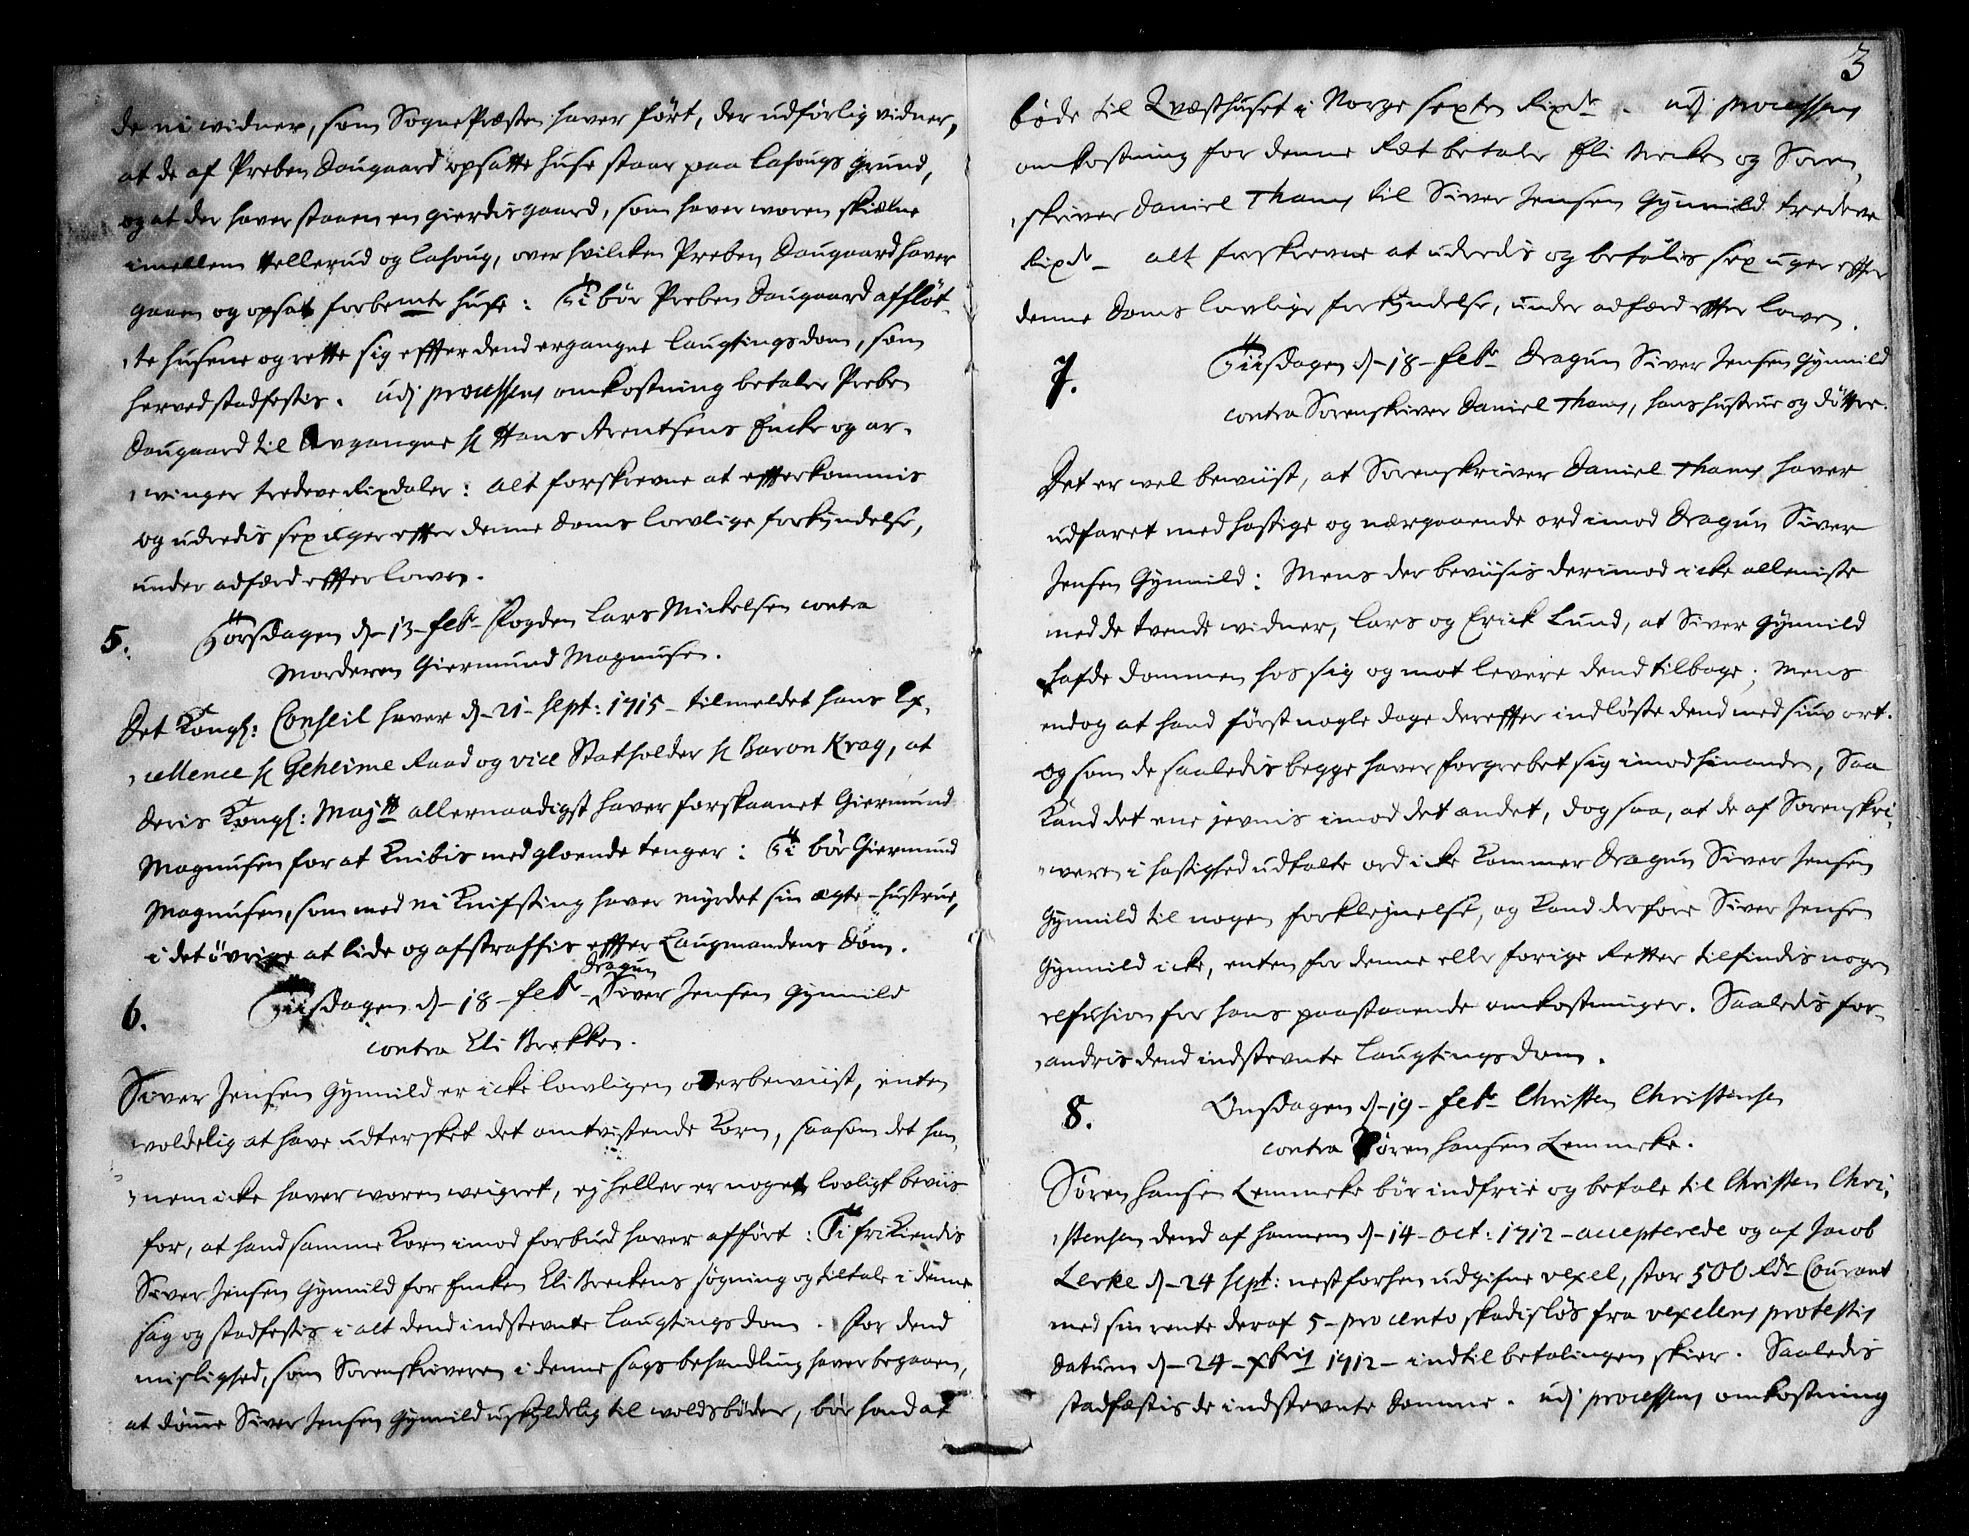 de ni widner, som SognePræsten haver ført, der udførlig vidner,
at de af Preben Daugaard opsatte huse staar paa Lahougs grund,
og at der haver staaen en gierdisgaard, som haver woren skielne
imellem Hellerud og Lahoug, over hvilcken Preben Daugaard haver
gaaen og opsat forbemte huse: Ti bør Preben Daugaard afflöt-
te husene og rette sig effter dend ergangne Laugtings dom, som
herved stadfestis. udj processens omkostning betaler Preben
Daugaard til Avgangne hr Hans Arentsens Encke og ar-
winger tredeve Rixdaler: alt forskrevne at effterkommis
og udredis sex uger effter denne Doms lovlige forkyndelse,
under adfærd effter lowen.
5. Torsdagen d. 13. febr. Fogden Lars Mickelsen contra
Morderen Giermund Magnusen.
Det Kongl: Conseil haver d. 21. sept: 1715 tilmeldet hans Ex-
cellence hr Geheime Raad og vice Statholder hr Baron Krag, at
Deris Kongl: Majtt allernaadigst haver forskaanet Giermund
Magnusen for at knibis med gloende tenger: Ti bør Giermund
Magnusen, som med ni knifsting haver myrdet sin ægte-hustrue,
i det övrige at lide og afstraffis effter Laugmandens Dom.
6. Tiisdagen d. 18. febr. Dragun Siver Jensen Gynnild
contra Eli Brekken.
Siver Jensen Gynnild er icke lowligen overbewiist, enten
voldelig at have udtersket det omtvistende Korn, saasom det han-
nem icke haver woren weigret, ej heller er noget lovligt beviis
for, at hand samme Korn imod forbud haver afført: Ti frikiendis
Siver Jensen Gynnild for Encken Eli Breckens søgning og tiltale i denne
sag og stadfestis i alt dend indstevnte Laugtings dom. For dend
mislighed, som Sorenskriveren i denne sags behandling haver begaaen,
at dømme Siver Jensen Gynnild uskyldelig til woldsbøder, bør hand at
3
bøde til Qvæsthuset i Norge sexten Rixdr. udj processens
omkostning for denne Ret betaler Eli Brecken og Soren-
skriver Daniel Thams til Siver Jensen Gynnild tredeve
Rixdr alt forskrevne at udredis og betalis sex uger effter
denne Doms lovlige forkyndelse, under adfærd effter lowen.
7. Tiisdagen d. 18. febr. Dragun Siver Jensen Gynnild
contra Sorenskriver Daniel Thams, hans hustrue og døttre.
Det er wel bewiist, at Sorenskriver Daniel Thams haver
udfaret med hastige og nærgaaende ord imod Dragun Siver
Jensen Gynnild: Mens der beviisis derimod icke alleniste
med de tvende widner, Lars og Erick Lund, at Siver Gynnild
hafde dommen hos sig og mot levere dend tilbage; mens
endog at hand først nogle dage dereffter indløste dend med siuv ort.
og som de saaledis begge haver forgrebet sig imod hinanden, Saa
Kand det ene jevnis imod det andet, dog saa, at de af Sorenskri-
veren i hastighed udtalte ord icke kommer Dragun Siver Jensen
Gynnild til nogen forklejnelse, og kand derfore Siver Jensen
Gynnild icke, enten for denne eller forige Retter tilfindis nogen
refusion for hans paastaaende omkostninger. Saaledis for-
andris dend indstevnte Laugtings dom.
8. Onsdagen d. 19. febr. Christen Christensen
contra Søren Hansen Lemmeke.
Søren Hansen Lemmeke bør indfrie og betale til Christen Chri-
stensen dend af hannem d. 14. oct: 1712 accepterede og af Jacob
Lerke d. 24 sept: nest forhen udgifne vexel, stor 500 Rdr Courant
med sin rente deraf 5 procento skadisløs fra vexelens protestis
datum d. 24. xbris 1712 indtil betalingen skier. Saaledis
stadfæstis de indstevnte Domme. udj processens omkostning